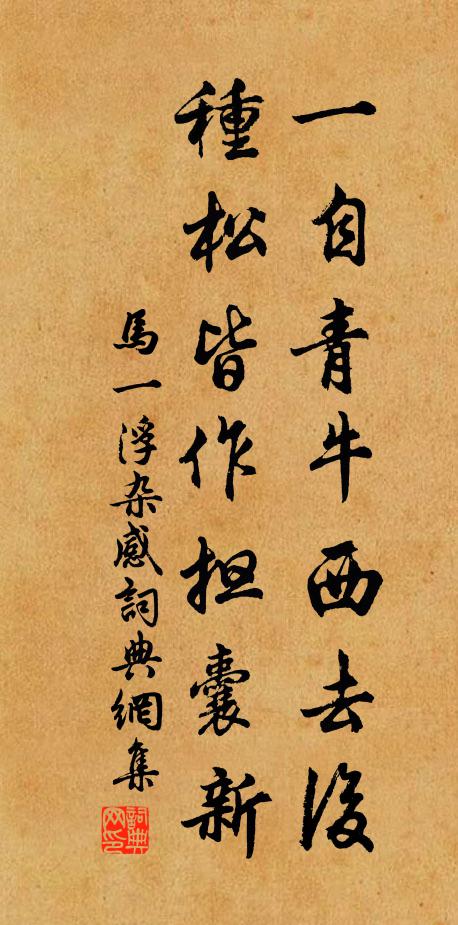 一自青牛西去後
種松皆作担囊新
馬一浮杂感詞典網集
詞典网印